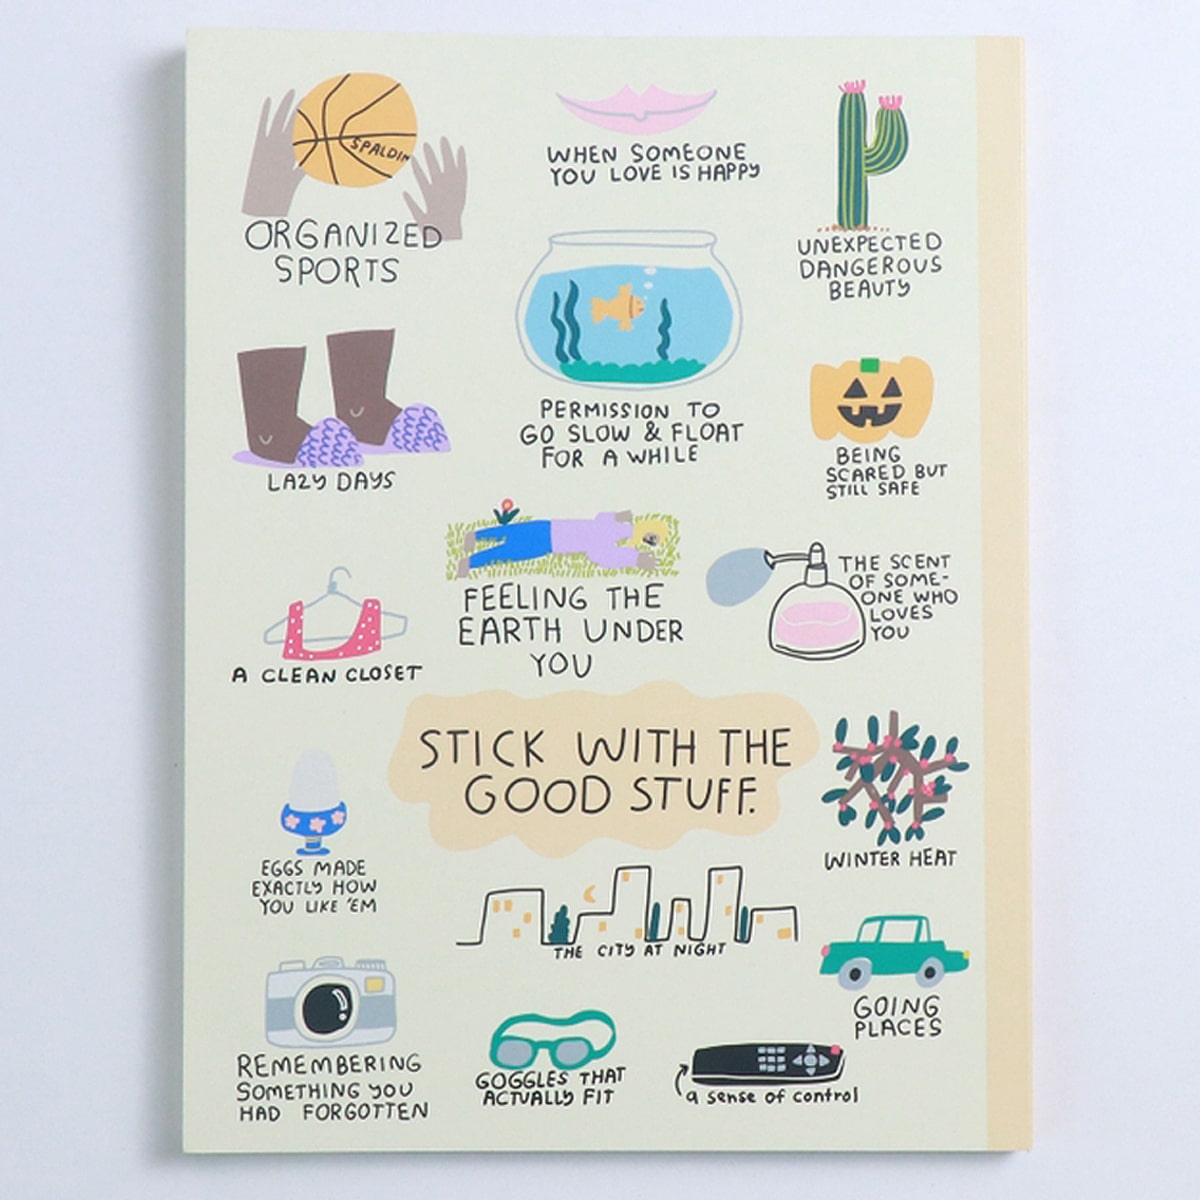 SPALDIN
ORGANIZED
SPORTS
WHEN SOMEONE
YOU LOVE IS HAPPY
UNEXPECTED
DANGEROUS
BEAUTY
LAZY DAYS
PERMISSION TO
GO SLOW & FLOAT
FOR A WHILE
BEING
SCARED BUT
STILL SAFE
A CLEAN CLOSET
FEELING THE
EARTH UNDER
YOU
THE SCENT
OF SOME-
ONE WHO
LOVES
YOU
STICK WITH THE
GOOD STUFF.
EGGS MADE
EXACTLY HOW
YOU LIKE 'EM
THE CITY AT NIGHT
WINTER HEAT
GOING
PLACES
REMEMBERING
SOMETHING YOU
HAD FORGOTTEN
GOGGLES THAT
ACTUALLY FIT
a sense of control